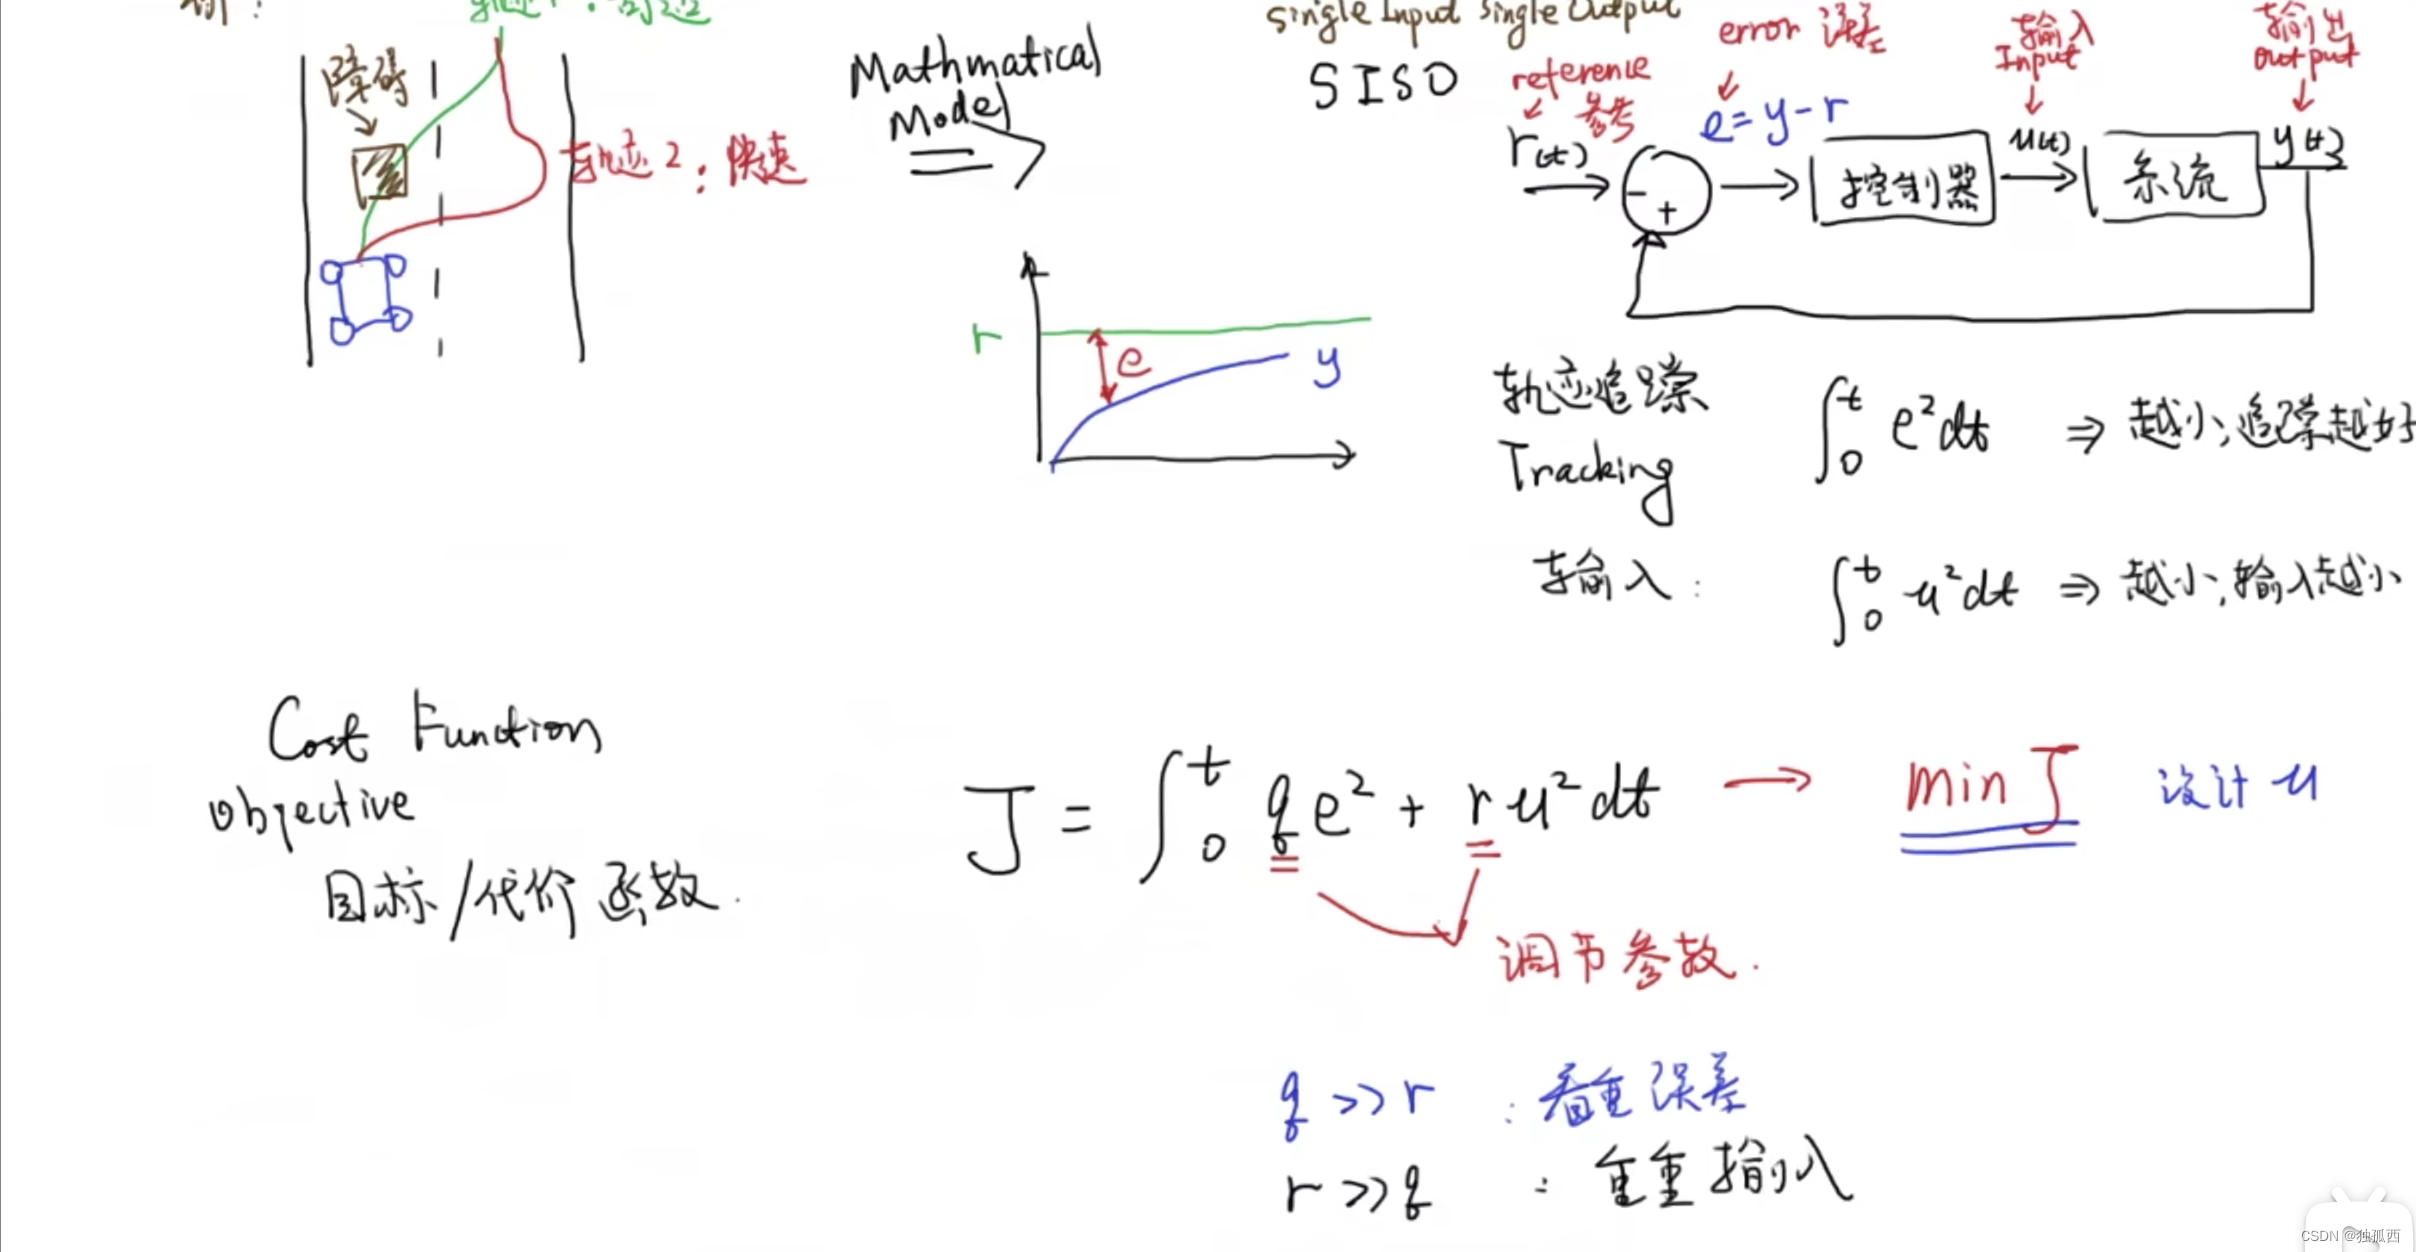 例:
single Input Single Output
error 误差
输入
Input
输出
output
障碍
Mathmatical
Model
SISO
reference
参考
e=y-r
r(t)
轨迹2:快速
-
+
控制器
u(t)
系统
y(t)
r
e
y
轨迹追踪
Tracking
∫₀ᵗ e²dt ⇒ 越小,追踪越好
输入:
∫₀ᵗ u²dt ⇒ 越小,输入越小
Cost Function
Objective
目标/代价函数.
J = ∫₀ᵗ qe² + ru²dt → min J 设计 u
调节参数.
q >> r : 看重误差
r >> q : 重输入
CSDN @独孤西